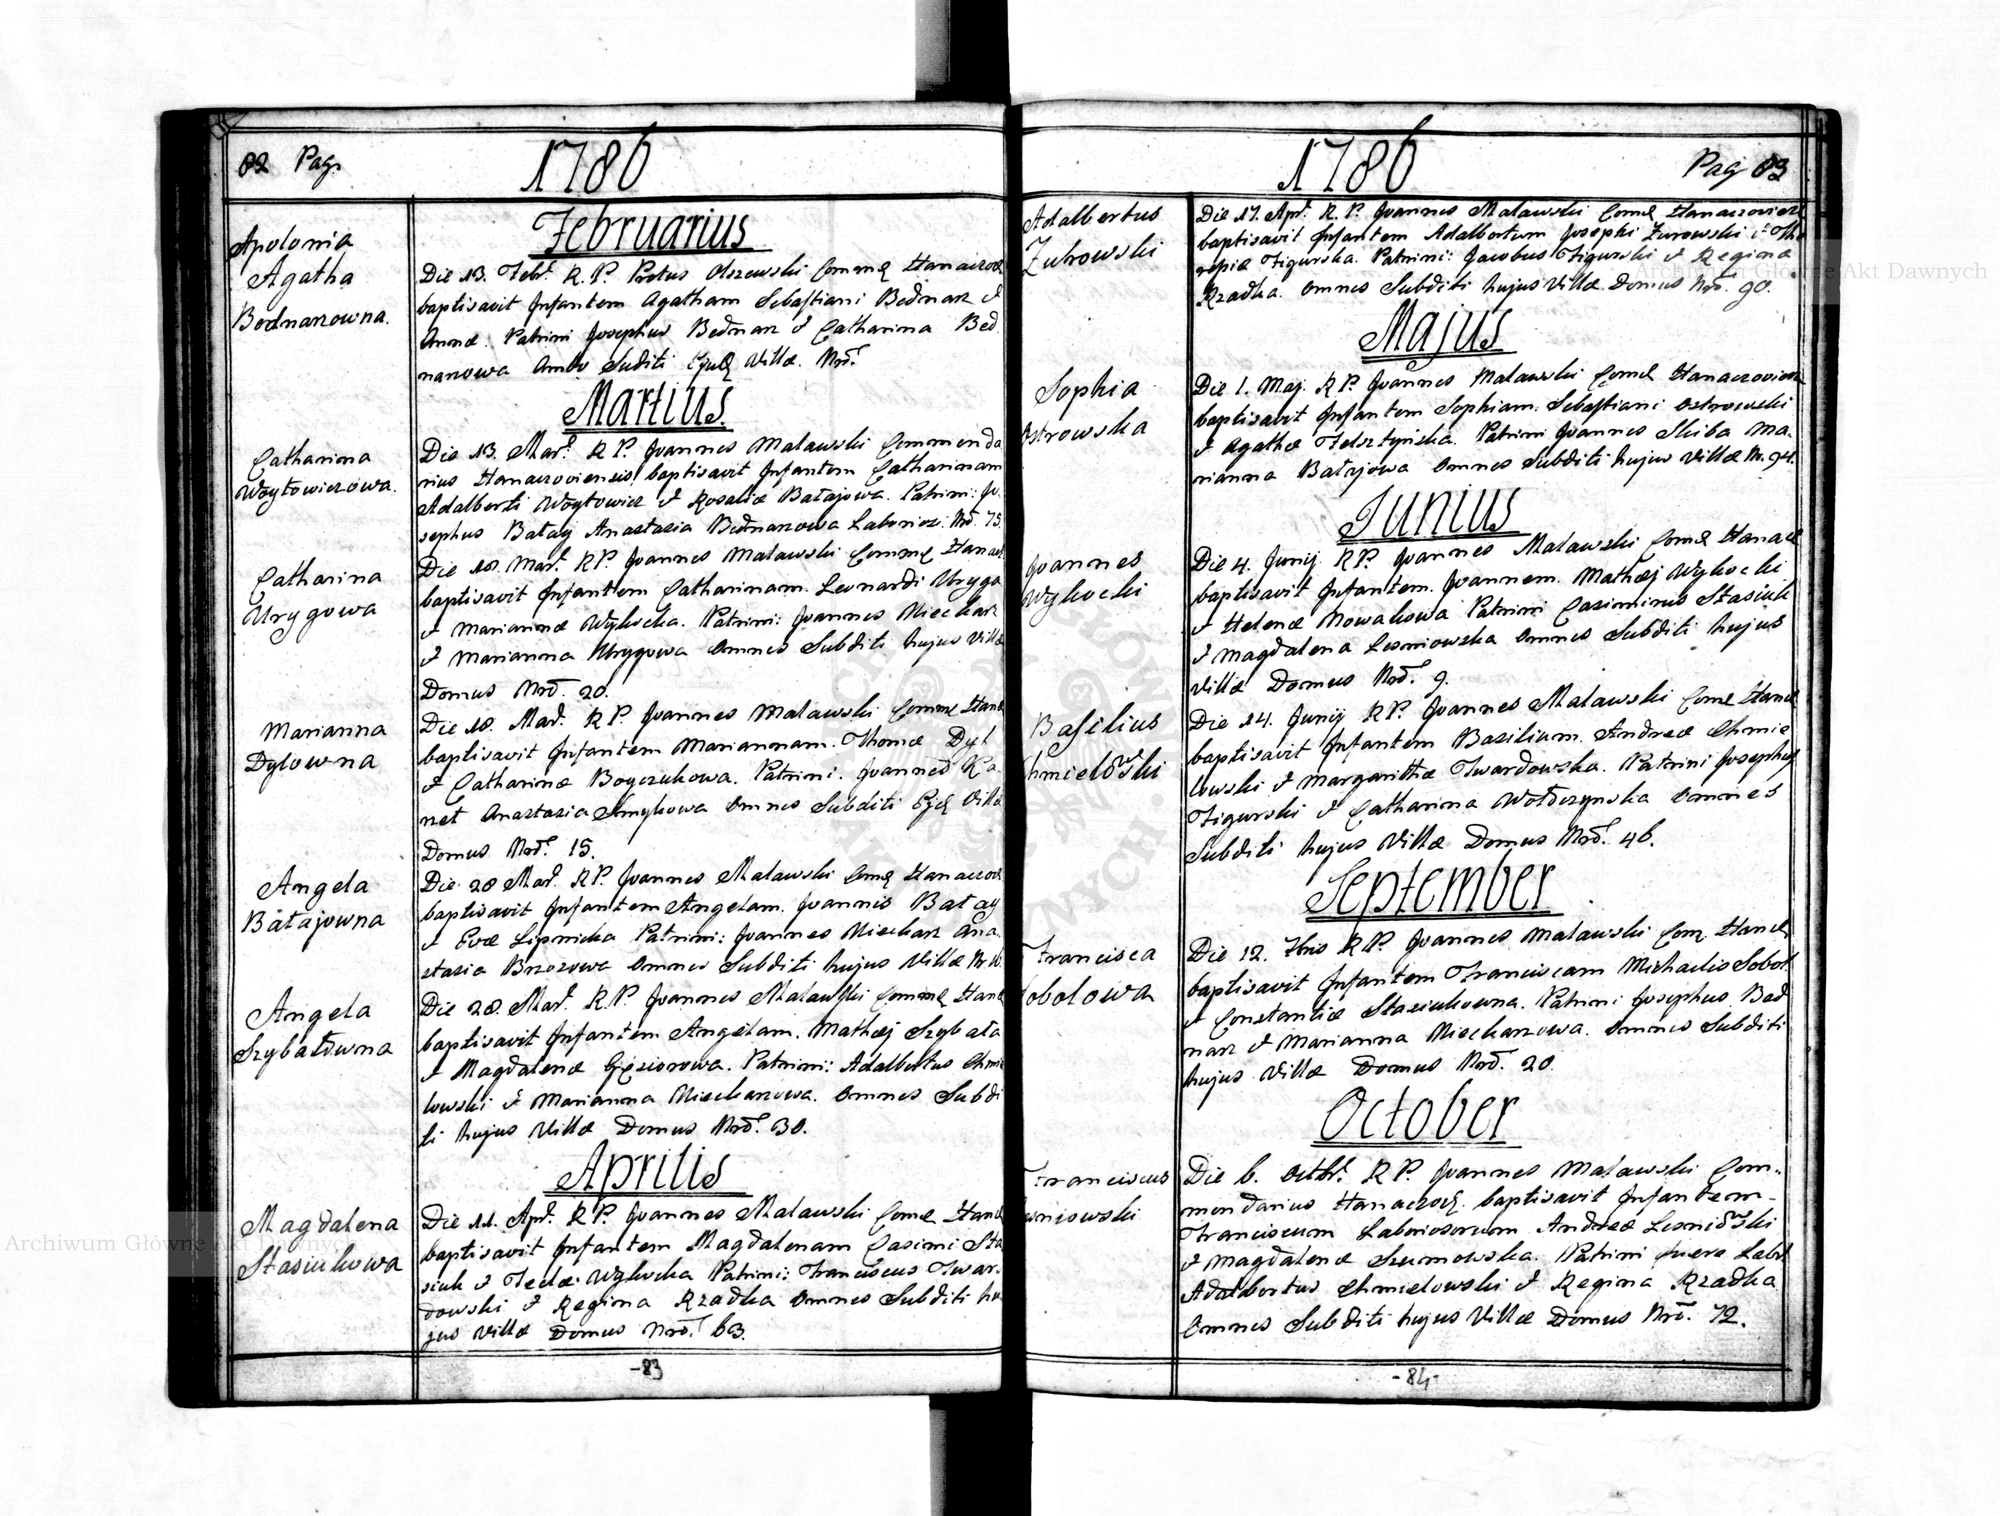 82 Pag.
1786
Februarius
Apolonia
Agatha
Bednarzowna.
Die 13. Febr. R. P. Protus Olszewski Comme Hanaczov
baptisavit Infantem Agatham Sebastiani Bednarz &
Annæ. Patrini Josephus Bednarz & Catharina Bed
narzowa Ambo Suditi Ejus Villæ. Nrõ.
Martius.
Catharina
Woytowiczowa.
Die 13. Mar. R P. Joannes Malawski Commenda
rius Hanaczoviensis baptisavit Infantem Catharinam
Adalberti Woytowicz & Rosaliæ Batajowa. Patrini: Jo
sephus Batay Anastazia Bednarzowa Laborios: Nrõ. 75.
Catharina
Urygowa
Die 18. Mar. R P. Joannes Malawski Comme Hanacz
baptisavit Infantem Catharinam. Leonardi Uryga
& Mariannæ Wysocka. Patrini: Joannes Niecharz
& Marianna Urygowa Omnes Subditi hujus Villæ
Domus Nrõ. 20.
Marianna
Dylowna
Die 18. Mar. R P. Joannes Malawski Comme Hana
baptisavit Infantem Mariannam. Thomæ Dyl
& Catharinæ Boyczukowa. Patrini. Joannes Ka
net Anastazia Smykowa Omnes Subditi Ejus Villæ
Domus Nrõ. 15.
Angela
Batajowna
Die 28 Mar. R P. Joannes Malawski Come Hanaczov
baptisavit Infantem Angelam. Joannis Batay
& Evæ Lipnicka Patrini: Joannes Niecharz Ana
stazia Brzozowa Omnes Subditi hujus Villæ
Angela
Szybatowna
Die 28. Mar. R. P. Joannes Malawski Comme Hana
baptisavit Infantem Angelam. Mathej Szybata
& Magdalenæ Gęsiorowa. Patrini: Adalbertus Chmie
lowski & Marianna Niecharzowa. Omnes Subdi
ti hujus Villæ Domus Nrõ. 30.
Aprilis
Magdalena
Stasiukowa
Die 11. Apr. R P. Joannes Malawski Come Hana
baptisavit Infantem Magdalenam Casimi Sta
siuk & Teclæ Wysocka Patrini: Franciscus Twar.
dowski & Regina Rzadka Omnes Subditi hu
jus Villæ Domus Nrõ. 63.
-83
1786
Pag 83
Adalbertus
Żurowski
Die 17. Apr. R. P. Joannes Malawski Come Hanaczoviens
baptisavit Infantem Adalbertum Josephi Żurowski & The
resiæ Figurska. Patrini: Jacobus Figurski & Regina
Rzadka. Omnes Subditi hujus Villæ Domus Nrõ. 90.
Majus
Sophia
Ostrowska
Die 1. Maj. R P. Joannes Malawski Come Hanaczoviens
baptisavit Infantem Sophiam. Sebastiani Ostrowski
& Agathæ Felsztyńska. Patrini Joannes Skiba Ma.
rianna Batajowa Omnes Subditi hujus Villæ Nr. 94.
Junius
Joannes
Wysocki
Die 4. Junij R P. Joannes Malawski Come Hanacz
baptisavit Infantem. Joannem. Mathæj Wysocki
& Helenæ Nowakowa Patrini Casimirus Stasiuk
& Magdalena Lesniowska Omnes Subditi hujus
Villæ Domus Nrõ. 9.
Basilius
Chmielowski
Die 14. Junij R P. Joannes Malawski Come Hana
baptisavit Infantem Basilium. Andreæ Chmie
lowski & Margarithæ Twardowska. Patrini Josephus
Figurski & Catharina Wołczynska Omnes
Subditi hujus Villæ Domus Nrõ. 46.
September
Francisca
Sobolowa
Die 12. 7bris R P. Joannes Malawski Com. Hanacz
baptisavit Infantem Franciscam Michaelis Sobol
& Constantiæ Stasiukowna. Patrini Josephus Bed
narz & Marianna Niecharzowa. Omnes Subditi
hujus Villæ Domus Nrõ. 20.
October
Franciscus
Lesniowski
Die 6. Octbr. R P. Joannes Malawski Com.
mendarius Hanaczov. baptisavit Infantem-
Franciscum Laboriosorum Andreæ Lesniowski
& Magdalenæ Szumowska. Patrini fuere Labr
Adalbertus Chmielowski & Regina Rzadka
Omnes Subditi hujus Villæ Domus Nrõ. 72.
-84-
Archiwum Główne Akt Dawnych
Archiwum Główne Akt Dawnych